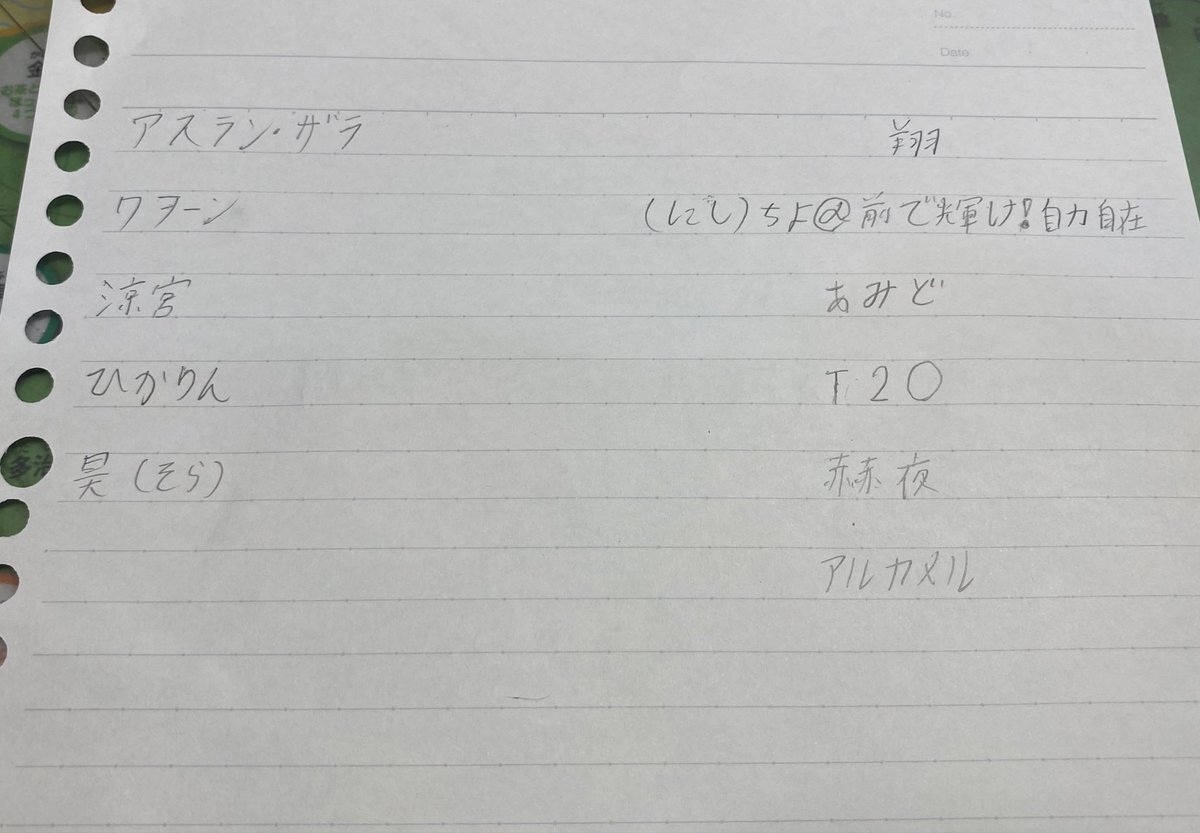 No.
Date
アスラン・ザラ
翔
ワヲーン
(にし)ちよ@前で輝け!自力自在
涼宮
あみど
ひかりん
T.20
昊(そら)
赫夜
アルカメル